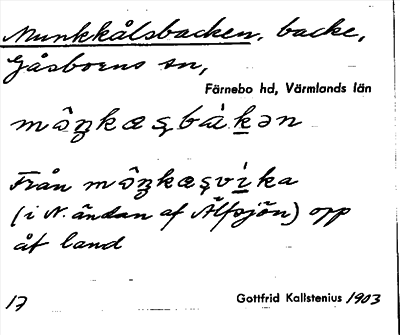 Munkkålsbacken, backe,
Gåsborns sn,
Färnebo hd, Värmlands län
môŋkæʂbàkən
Från môŋkæʂvìka
(i N. ändan af Älfsjön) opp
åt land
17 Gottfrid Kallstenius 1903